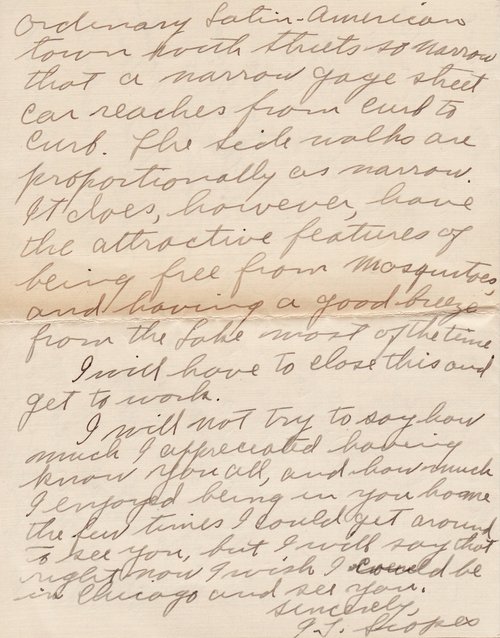 ordinary Latin-American
town with streets so narrow
that a narrow gage street
car reaches from curb to
curb. The side walks are
proportionally as narrow.
It does, however, have
the attractive features of
being free from mosquitoes,
and having a good breeze
from the Lake most of the time
I will have to close this and
get to work.
I will not try to say how
much I appreciated having
know you all, and how much
I enjoyed being in you home
the few times I could get around
to see you, but I will say that
right now I wish I could be
in Chicago and see you.
Sincerely,
J.T. Scopes